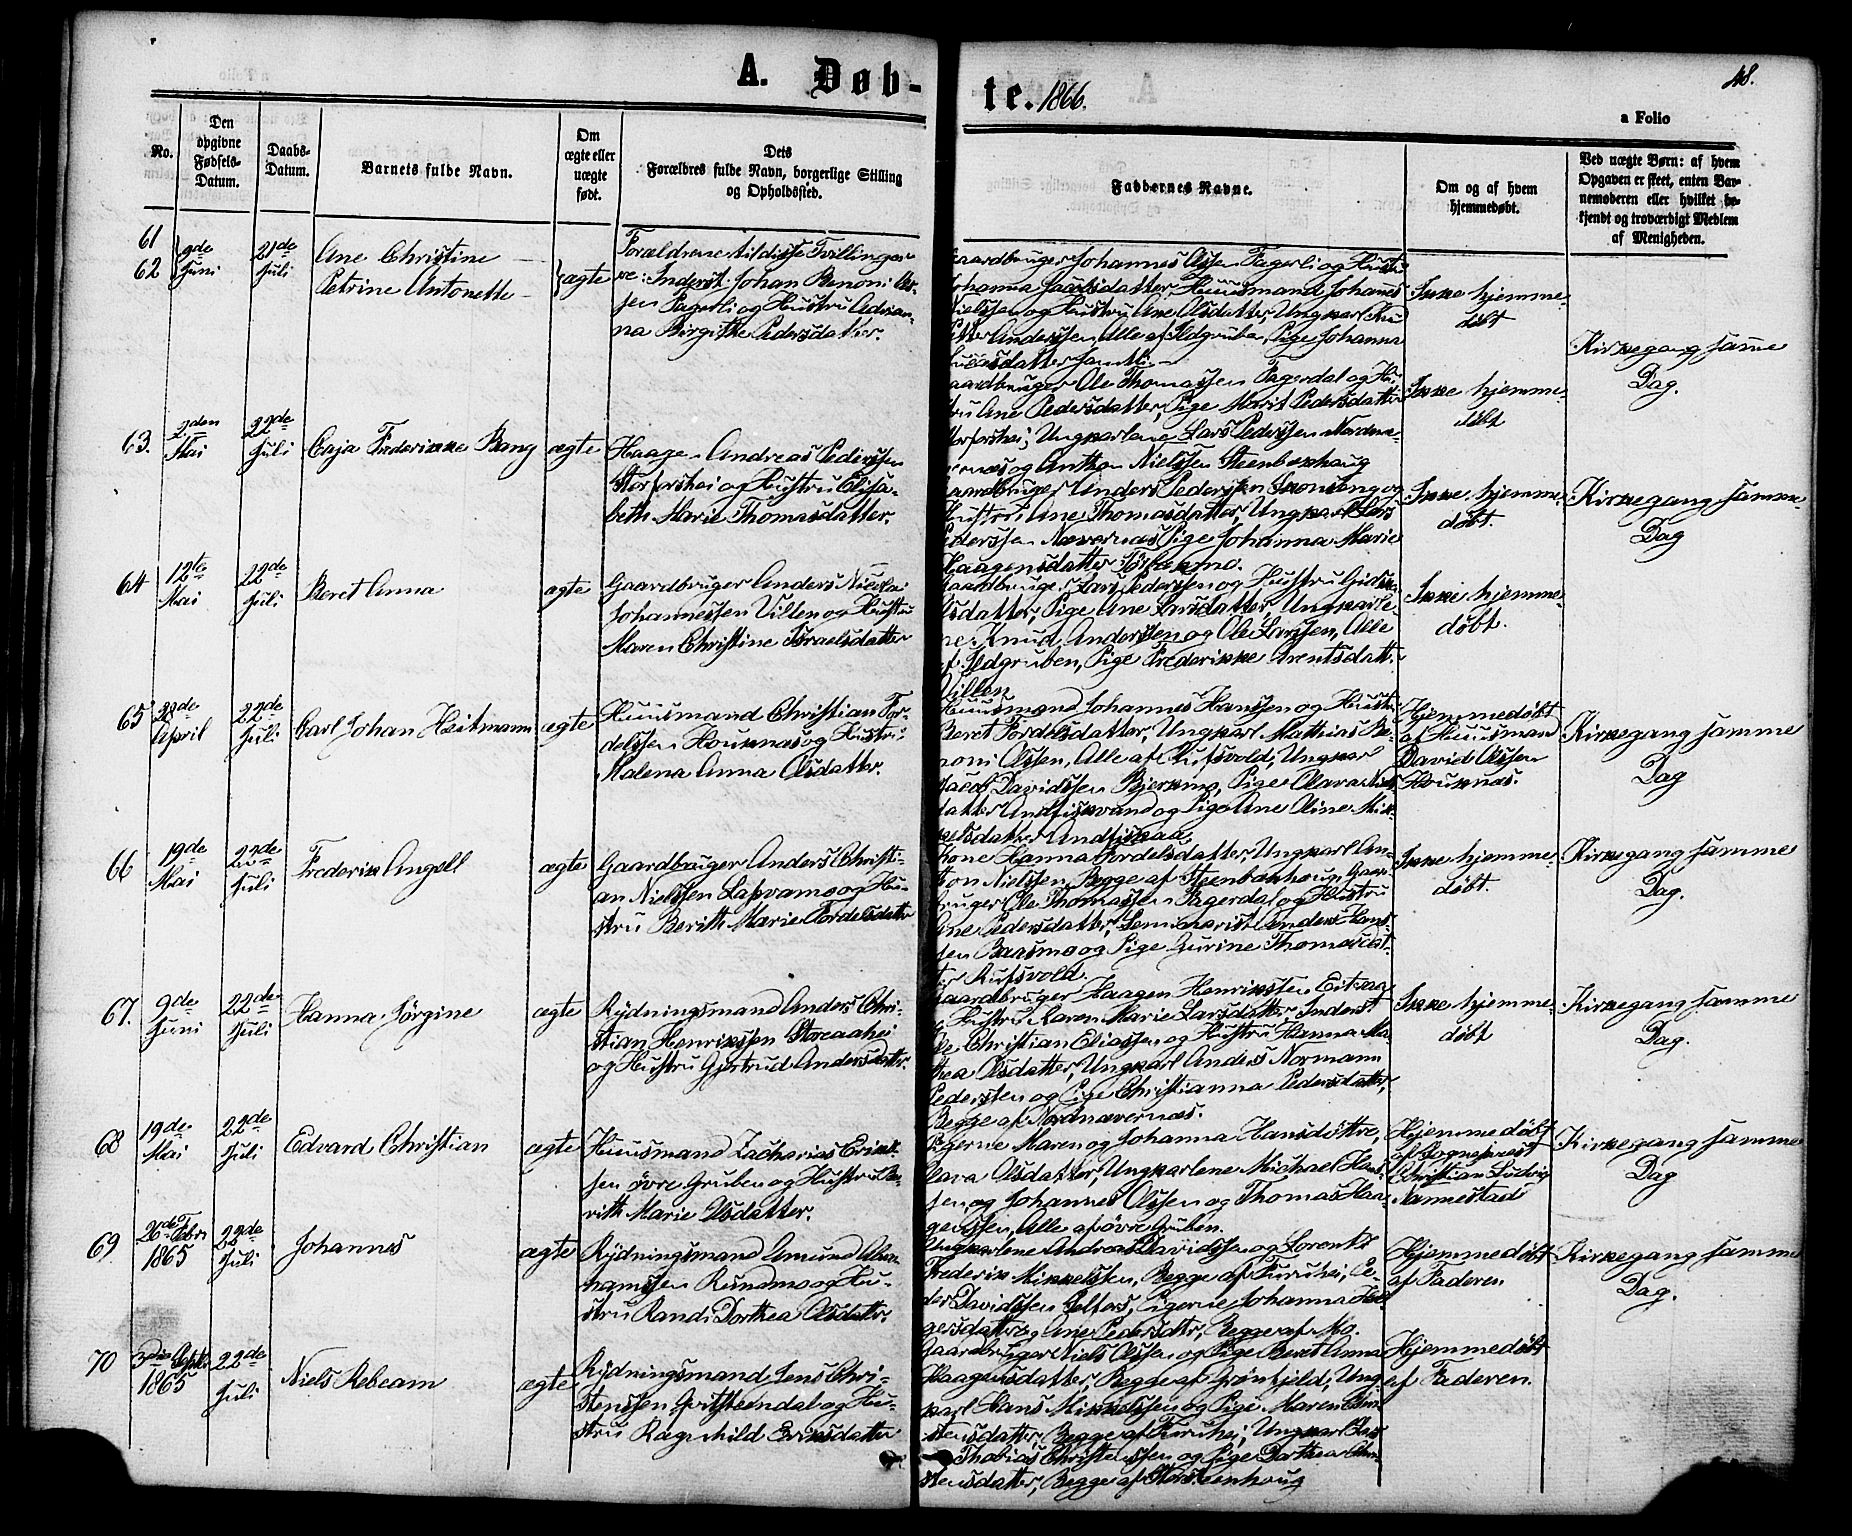 A. Døb-te. 1866.
48.
a Folio
No.
Den opgivne Fødsels-Datum.
Daabs-Datum.
Barnets fulde Navn.
Om ægte eller uægte født.
Dets Forældres fulde Navn, borgerlige Stilling og Opholdssted.
Faddernes Navne.
Om og af hvem hjemmedøbt.
Ved uægte Børn: af hvem Opgaven er skeet, enten Barnemoderen eller hvilket bekjendt og troværdigt Medlem af Menigheden.
61
62
9de Juni
21de Juli
Ane Christine
Petrine Antonette
ægte
Forældrene til disse Tvillinger
ere: Inderst Johan Benoni Ol-
sen Fagerli og Hustru Adrian-
na Birgitte Pedersdatter.
Gaardbruger Johannes Olssen Fagerli og Hustru
Johanna Isaaksdatter, Huusmand Johannes
Nielssen og Hustru Ane Olsdatter, Ungkarl
Petter Anderssen, Alle af Ildgruben, Pige Johanna
Ikke hjemme-
døbt
Kirkegang samme
Dag.
63.
2den Mai
22de Juli
Caja Frederikke Bang
ægte
Haagen Andreas Pederssen
Storforshei og Hustru Elisa-
beth Marie Thomasdatter.
Gaardbruger Ole Thomassen Fagerdal og Hu-
stru Ane Pedersdatter, Pige Marit Pedersdatter
Storforshei, Ungkarlene Lars Pederssen Nordnæ-
vernæs og Anthon Nielssen Steenbekhaug
Ikke hjemme-
døbt
64
12te Mai
22de Juli
Beret Anna
ægte
Gaardbruger Anders Nicolai
Johannessen Villen og Hustru
Maren Christine Israelsdatter
Gaardbruger Anders Pederssen Skonseng og
Hustru Ane Thomasdatter, Ungkarl Lars
Pederssen Nævernæs, Pige Johanna Marie
Haagensdatter
Ikke hjemme-
døbt.
Kirkegang samme
Dag
Gaardbruger Lars Pederssen og Hustru
Olsdatter, Pige Ane Larsdatter, Ungkarle-
ne Knud Anderssen og Ole Larssen, Alle
af Ildgruben, Pige Frederikke Arentsdatt.
Villen
Ikke hjemme-
døbt.
65
28de April
22de Juli
Carl Johan Heitmann
ægte
Huusmand Christian Tor-
delssen Houknæs og Hustru
Malena Anna Olsdatter.
Huusmand Johannes Hanssen og Hustru
Beret Tordelsdatter, Ungkarl Mathias Be-
noni Olssen, Alle af Rufsvold, Ungkar
Jacob Davidssen Bjerkmo, Pige Olava Niels
datter Andfiskvand og Pige Ane Oline Mik-
kelsdatter Andfiskaa
Hjemmedøbt
af Huusmand
David Olssen
Houknæs.
Kirkegang samme
Dag
66
19de Mai
22de Juli
Frederik Angell
ægte
Gaardbruger Anders Christi-
an Nielssen Lapvamo og Hu-
stru Berith Marie Tordelsdatter
Kone Hanna Tordelsdatter, Ungkarl An-
ton Nielssen Begge af Steenbækhoug, Gaard-
bruger Ole Thomassen Fagerdal og Hustru
Ane Pedersdatter, Seminarist Anders Hans-
sen Baasmo og Pige Gurine Thomasdat-
ter Rufsvold.
Ikke hjemme-
døbt.
Kirkegang samme
Dag.
67.
9de Juni
22de Juli
Hanna Jørgine
ægte
Rydningsmand Anders Chri-
stian Henrikssen Storaahei
og Hustru Gjertrud Andersdatter.
Gaardbruger Haagen Henrikssen
Hustru Karen Marie Larsdatter, Inderst
Ole Christian Eliassen og Hustru Hanna Ma-
thea Olsdatter, Ungkarl Anders Normann
Pederssen og Pige Christianna Pedersdatter,
Begge af Nordnævernæs.
Ikke hjemme-
døbt
Kirkegang samme
Dag.
68
19de Mai
22de Juli
Edvard Christian
ægte
Huusmand Zacharias Erik-
sen øvre Gruben og Hustru Be-
rith Marie Olsdatter.
Pigerne Maren og Johanna Hansdøttre,
Olava Olsdatter, Ungkarlene Michael Hans-
sen og Johannes Olssen og Thomas Haa-
genssen, Alle af øvre Gruben.
Hjemmedøbt
af Sognepræst
Christian Ludvig
Nannestad
Kirkegang samme
Dag
69
26de Febr. 1865
22de Juli
Johannes
ægte
Rydningsmand Amund Abra-
hamssen Rundmo og Hu-
stru Randi Dorthea Olsdatter.
Ungkarlene Andreas Davidssen og Lorentz
Frederik Mikkelssen, Begge af Furuhei, Pe-
der Davidssen Selfors, Pigerne Johanna
og Ane Pedersdtr, Begge af Mo.
Hjemmedøbt
af Faderen
Kirkegang samme
Dag.
70
3die Septbr 1865
22de Juli
Niels Rebeam
ægte
Rydningsmand Jens Chri-
stenssen Gvitsteendal og Hu-
stru Ragnhild Eriksdatter
Gaardbruger Niels Olssen og Pige Beret Anna
Haagensdatter, Begge af Grønfjeld, Ung-
karl Hans Mikkelssen og Pige Maren Chri-
stensdatter, Begge af Furuhei, Ungkarl
Thobias Christenssen og Pige Dorthea Chri-
stensdatter, Begge af Storsteenhoug
Hjemmedøbt
af Faderen.